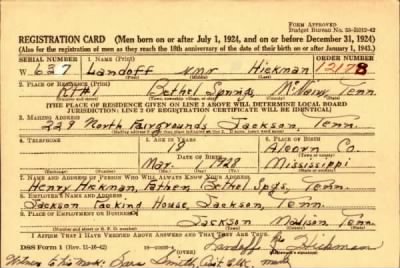 Form Approved
Budget Bureau No. 33-R012-42
REGISTRATION CARD (Men born on or after July 1, 1924, and on or before December 31, 1924)
(Also for the registration of men as they reach the 18th anniversary of the date of their birth on or after January 1, 1943.)
SERIAL NUMBER 1. NAME (Print) ORDER NUMBER
W 627 Landoff nmn Hickman 12178
(First) (Middle) (Last)
2. PLACE OF RESIDENCE (Print)
Rt #1 Bethel Springs McNairy Tenn.
[THE PLACE OF RESIDENCE GIVEN ON LINE 2 ABOVE WILL DETERMINE LOCAL BOARD
JURISDICTION; LINE 2 OF REGISTRATION CERTIFICATE WILL BE IDENTICAL]
3. MAILING ADDRESS
229 North Fairgrounds Jackson, Tenn.
4. TELEPHONE 5. AGE IN YEARS 6. PLACE OF BIRTH
18 Alcorn Co.
DATE OF BIRTH
Mar. Mississippi
7. NAME AND ADDRESS OF PERSON WHO WILL ALWAYS KNOW YOUR ADDRESS
Henry Hickman, Father Bethel Spgs, Tenn.
8. EMPLOYER'S NAME AND ADDRESS
Jackson Packing House, Jackson, Tenn.
9. PLACE OF EMPLOYMENT OR BUSINESS
Jackson Madison Tenn.
I AFFIRM THAT I HAVE VERIFIED ABOVE ANSWERS AND THAT THEY ARE TRUE.
DSS Form 1 (Rev. 11-16-42) Landoff Hickman
Witness to his mark. Smith, mark